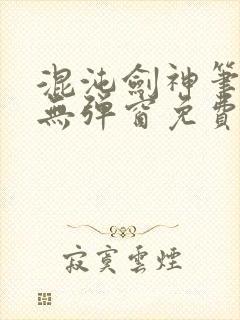 混沌劍神筆
無彈窗免費
寂寞雲煙